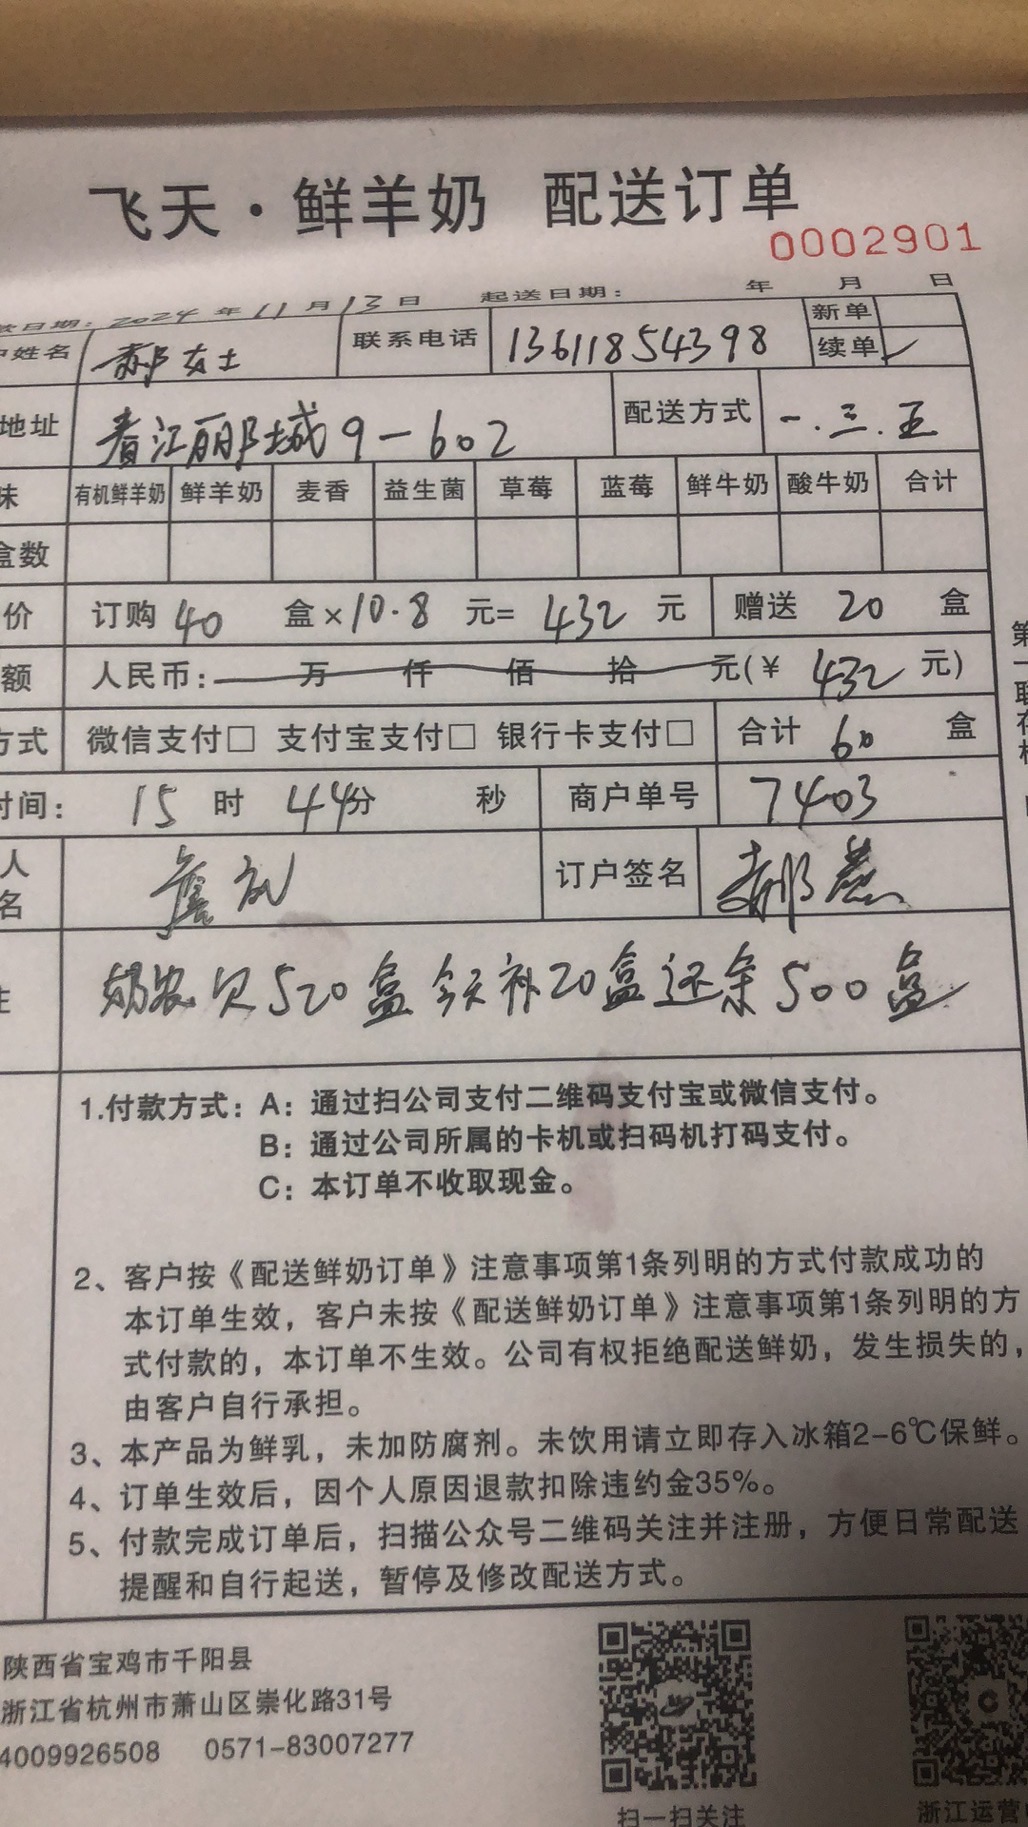 飞天·鲜羊奶 配送订单
0002901
款日期: 2024 年 11 月 13 日 起送日期: 年 月 日
户姓名 郝女士 联系电话 13611854398 新单
续单 ✓
地址 春江丽城9-602 配送方式 一.三.五
味 有机鲜羊奶 鲜羊奶 麦香 益生菌 草莓 蓝莓 鲜牛奶 酸牛奶 合计
盒数
价 订购 40 盒×10.8 元= 432 元 赠送 20 盒
额 人民币: 万 仟 佰 拾 元(¥ 432 元)
方式 微信支付□ 支付宝支付□ 银行卡支付□ 合计 60 盒
时间: 15 时 44分 秒 商户单号 7403
人
名 订户签名 郝
注 欠520盒今天补20盒还余500盒
1.付款方式: A: 通过扫公司支付二维码支付宝或微信支付。
B: 通过公司所属的卡机或扫码机打码支付。
C: 本订单不收取现金。
2、客户按《配送鲜奶订单》注意事项第1条列明的方式付款成功的
本订单生效，客户未按《配送鲜奶订单》注意事项第1条列明的方
式付款的，本订单不生效。公司有权拒绝配送鲜奶，发生损失的，
由客户自行承担。
3、本产品为鲜乳，未加防腐剂。未饮用请立即存入冰箱2-6℃保鲜。
4、订单生效后，因个人原因退款扣除违约金35%。
5、付款完成订单后，扫描公众号二维码关注并注册，方便日常配送
提醒和自行起送，暂停及修改配送方式。
第一联存根
陕西省宝鸡市千阳县
浙江省杭州市萧山区崇化路31号
4009926508 0571-83007277
扫一扫关注
浙江运营